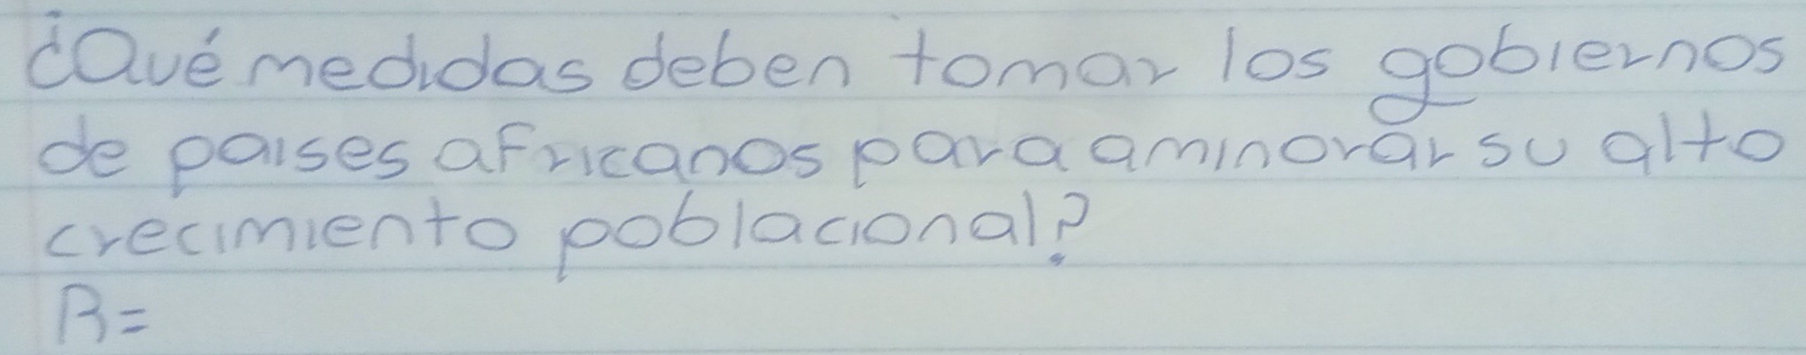 ¿Qué medidas deben tomar los gobiernos
de paises africanos para aminorar su alto
crecimiento poblacional?
R=